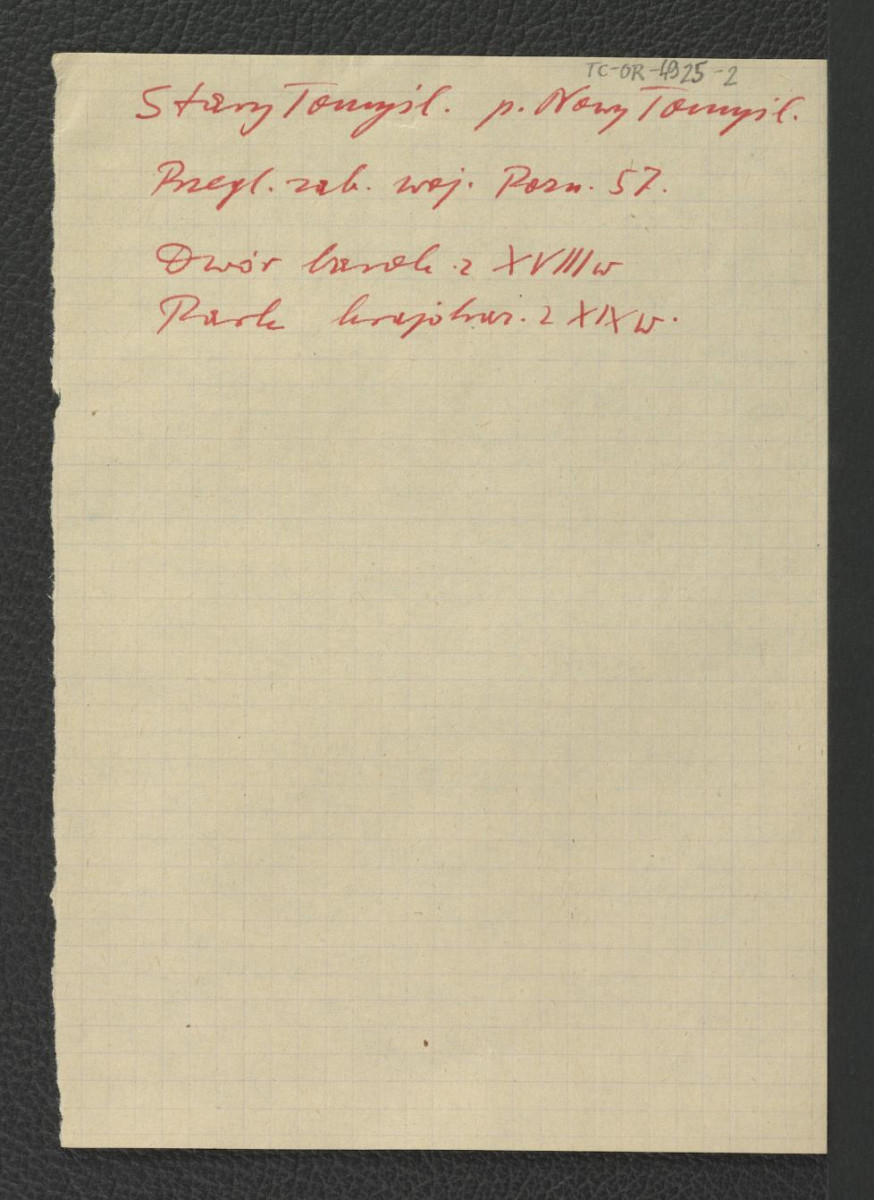 TC-OR-4925-2
Stary Tomyśl. p. Nowy Tomyśl.
Przegl. zab. woj. Pozn. 57.
Dwór barok. z XVIII w
Park krajobraz. z XIX w.